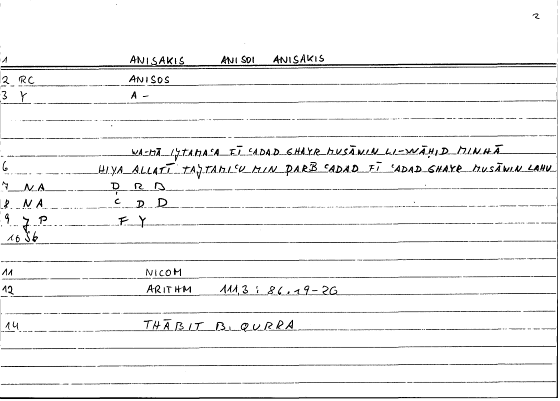 2
1 ANISAKIS ANISOI ANISAKIS
2 RC ANISOS
3 Y A-
WA-MĀ IǦTAMAʿA FĪ ʿADAD GHAYR MUSĀWIN LI-WĀḤID MINHĀ
6 HIYA ALLATĪ TAǦTAMIʿU MIN ḌARB ʿADAD FĪ ʿADAD GHAYR MUSĀWIN LAHU
7 NA Ḍ R B
8 NA ʿ D D
9 J P F Y
10 SG
11 NICOM
12 ARITHM 111,3 : 86.19-20
14 THĀBIT B. QURRA